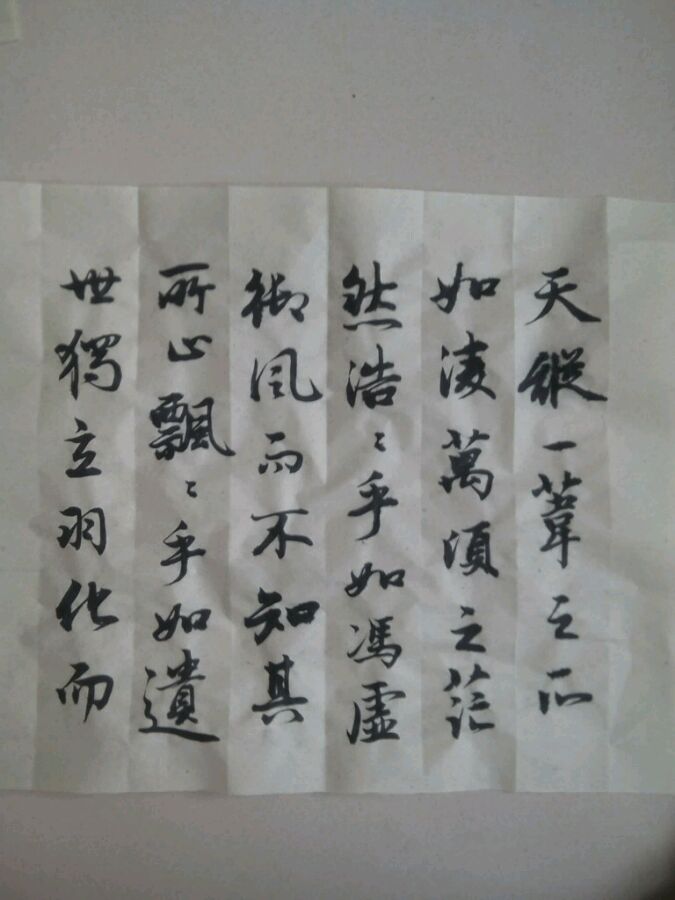 天縱一葦之所
如凌萬頃之茫
然浩〻乎如馮虛
御風而不知其
所止飄〻乎如遺
世獨立羽化而